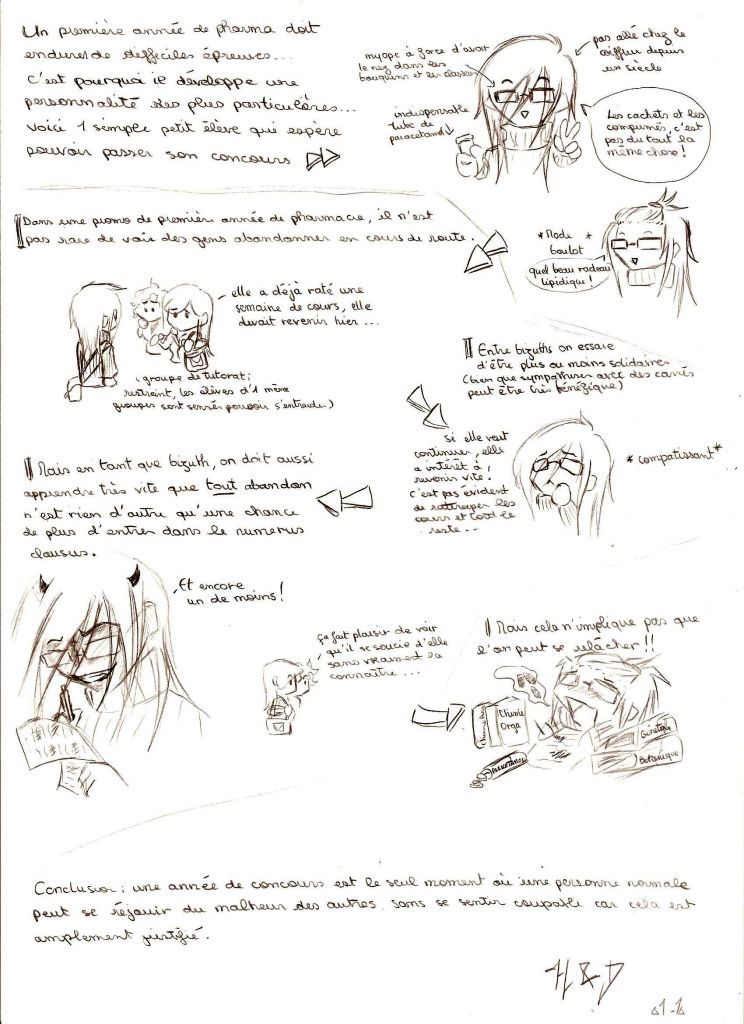 Un première année de pharma doit
endurer de difficiles épreuves...
c'est pourquoi il développe une
personnalité des plus particulières...
voici 1 simple petit élève qui espère
pouvoir passer son concours
myope à force d'avoir
le nez dans les
bouquins et les classeurs
indispensable
tube de
paracétamol
pas allé chez le
coiffeur depuis
un siècle
Les cachets et les
comprimés, c'est
pas du tout la
même chose !
Dans une promo de première année de pharmacie, il n'est
pas rare de voir des gens abandonner en cours de route.
* Mode *
boulot
quel beau radeau
lipidique !
elle a déjà raté une
semaine de cours, elle
devait revenir hier...
(groupe de tutorat :
restreint, les élèves d'1 même
groupe sont sensés pouvoir s'entraider.)
Entre bizuths on essaie
d'être plus ou moins solidaires
(bien que sympathiser avec des carrés
peut être très bénéfique)
si elle veut
continuer, elle
a intérêt à
revenir vite.
C'est pas évident
de rattraper les
cours et tout le
reste...
* compatissant *
Mais en tant que bizuth, on doit aussi
apprendre très vite que tout abandon
n'est rien d'autre qu'une chance
de plus d'entrer dans le numerus
clausus.
Et encore
un de moins !
ça fait plaisir de voir
qu'il se soucie d'elle
sans vraiment la
connaître...
Mais cela n'implique pas que
l'on peut se relâcher !!
Chimie
Orga
Génétique
Botanique
Conclusion : une année de concours est le seul moment où une personne normale
peut se réjouir du malheur des autres sans se sentir coupable car cela est
amplement justifié.
H & D